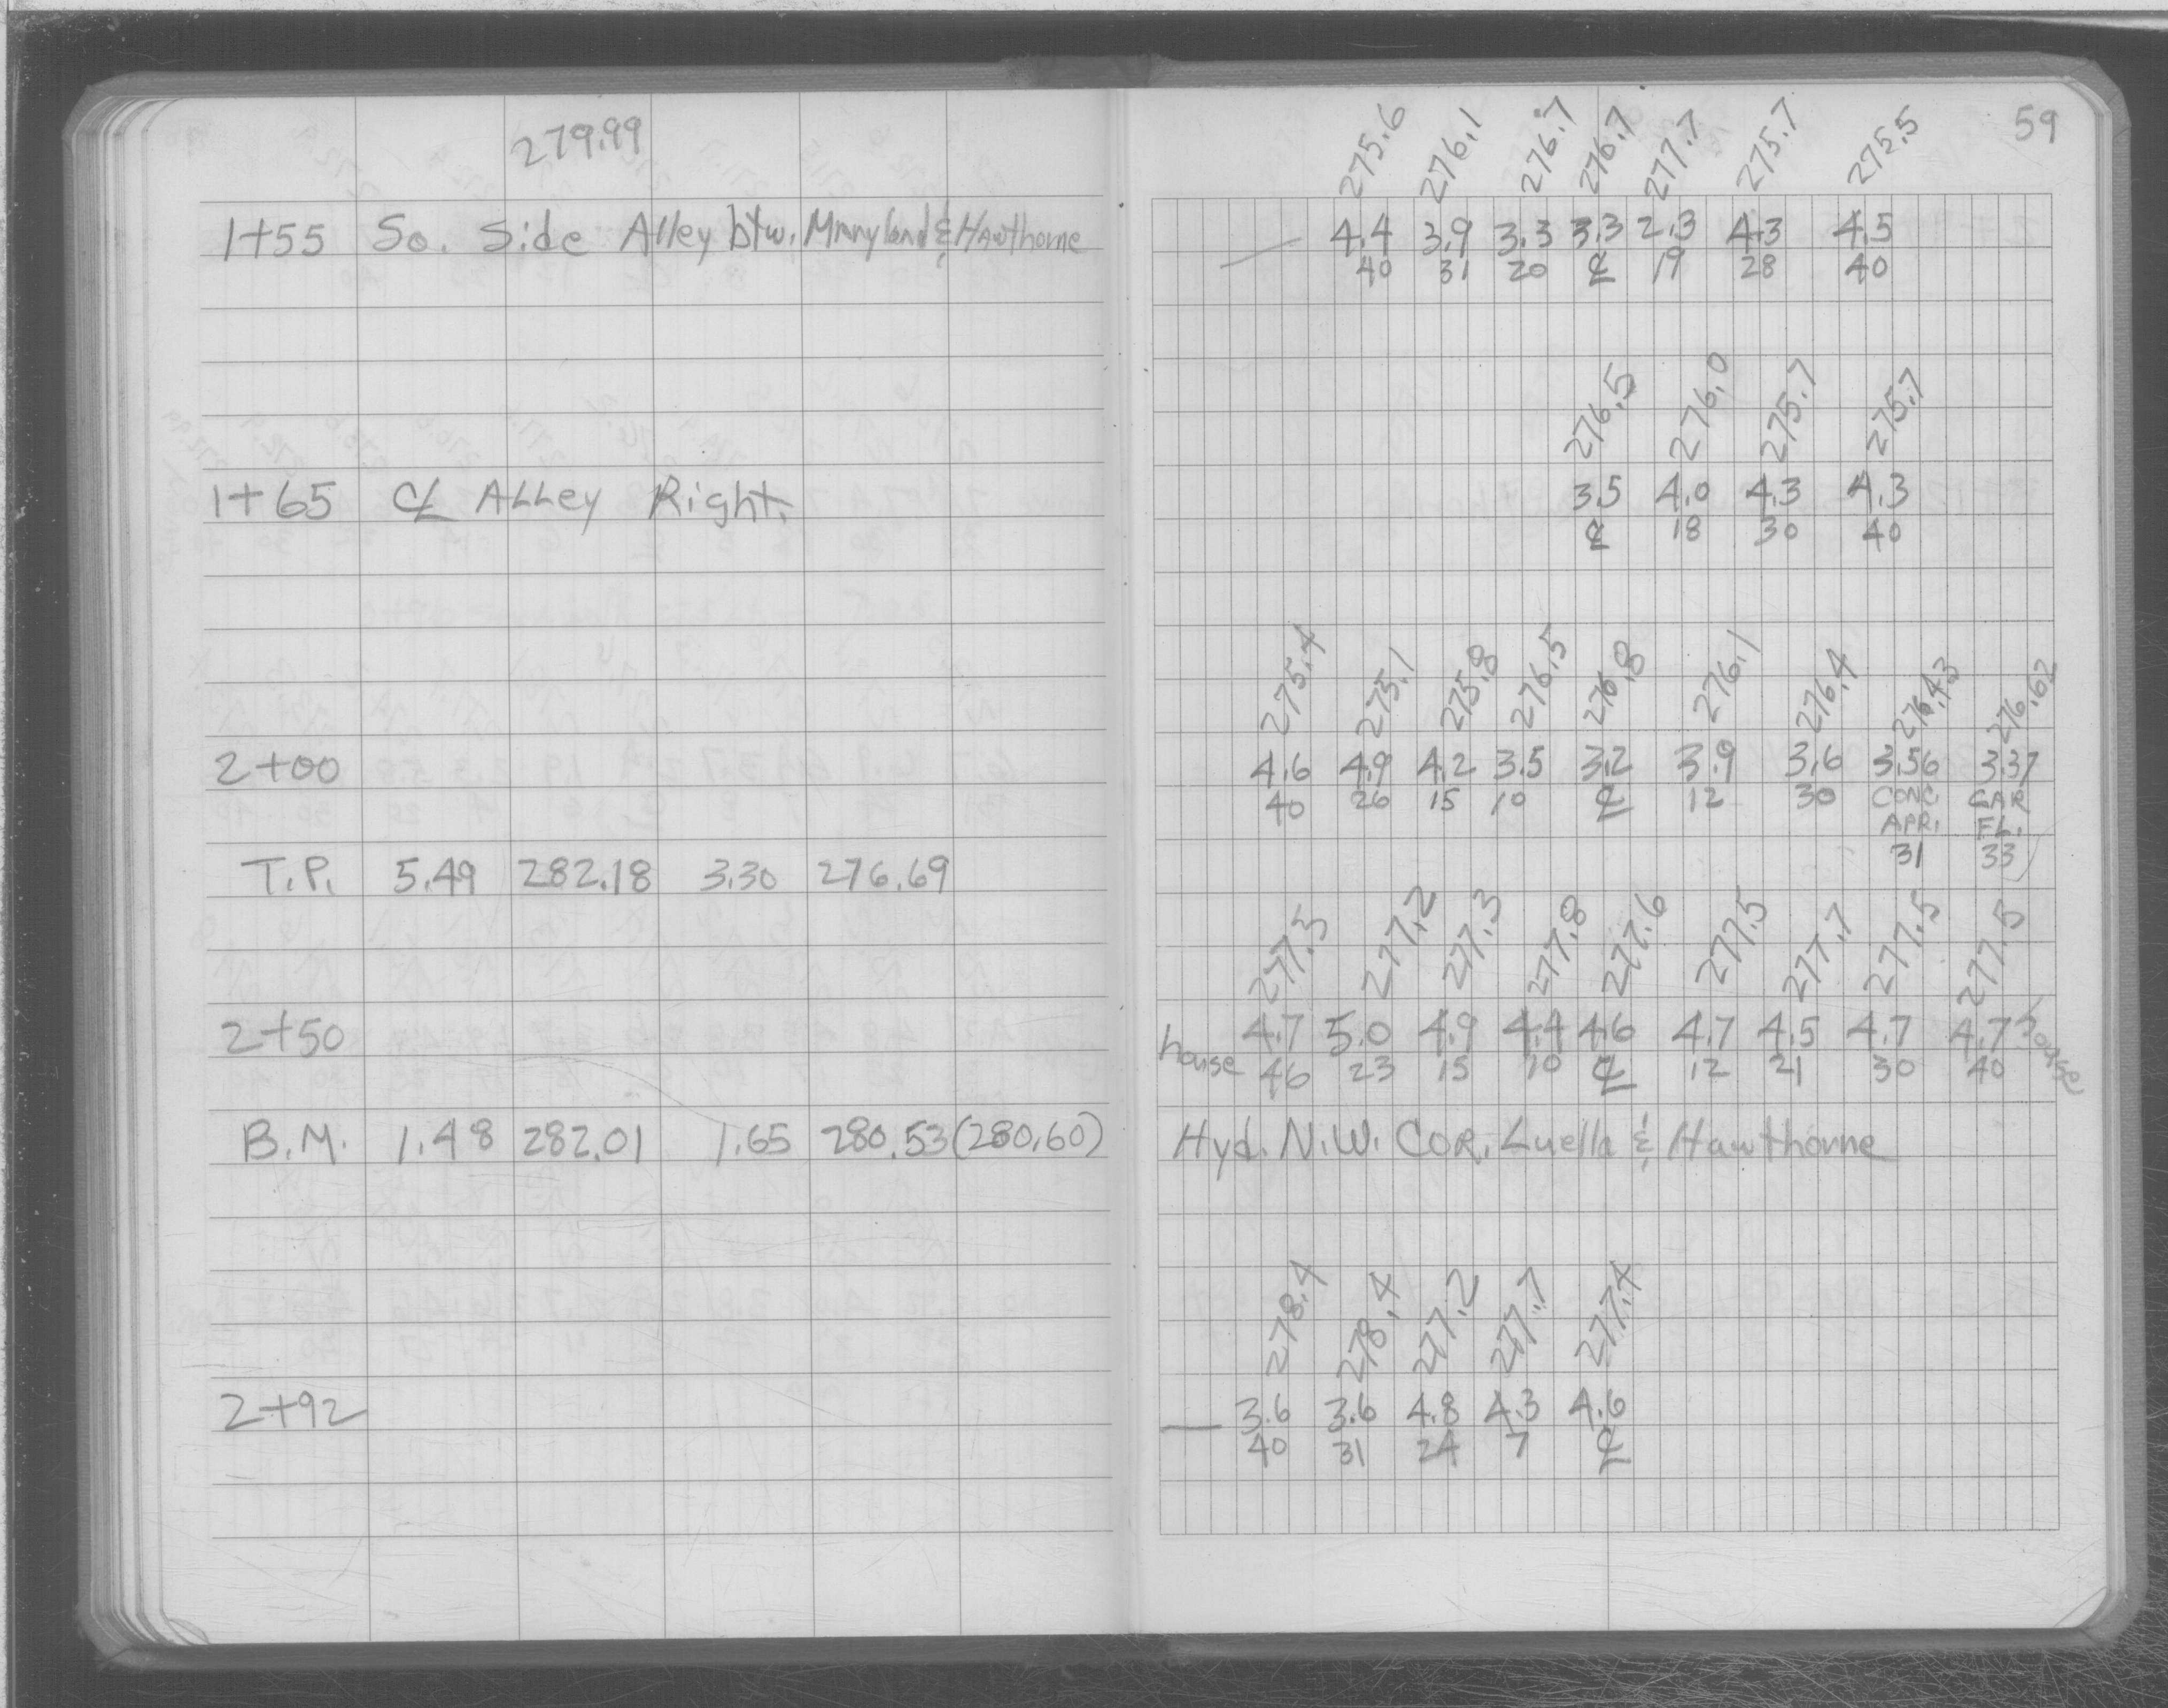 279.99
1+55 So. Side Alley btw. Maryland & Hawthorne
1+65 ℄ ALLey Right.
2+00
T.P. 5.49 282.18 3.30 276.69
2+50
B.M. 1.48 282.01 1.65 280.53 (280.60)
2+92
59
275.6 276.1 276.7 276.7 277.7 275.7 275.5
4.4 3.9 3.3 3.3 2.3 4.3 4.5
40 31 20 ℄ 19 28 40
276.5 276.0 275.7 275.7
3.5 4.0 4.3 4.3
℄ 18 30 40
275.4 275.1 275.8 276.5 276.8 276.1 276.4 276.43 276.62
4.6 4.9 4.2 3.5 3.2 3.9 3.6 3.56 3.37
40 26 15 10 ℄ 12 30 CONC. GAR
APR. FL.
31 33
277.5 277.2 277.3 277.8 277.6 277.5 277.7 277.5 277.5
4.7 5.0 4.9 4.4 4.6 4.7 4.5 4.7 4.7 house
house 46 23 15 10 ℄ 12 21 30 40
Hyd. N.W. COR. Luella & Hawthorne
278.4 278.4 277.2 277.7 277.4
3.6 3.6 4.8 4.3 4.6
40 31 24 7 ℄